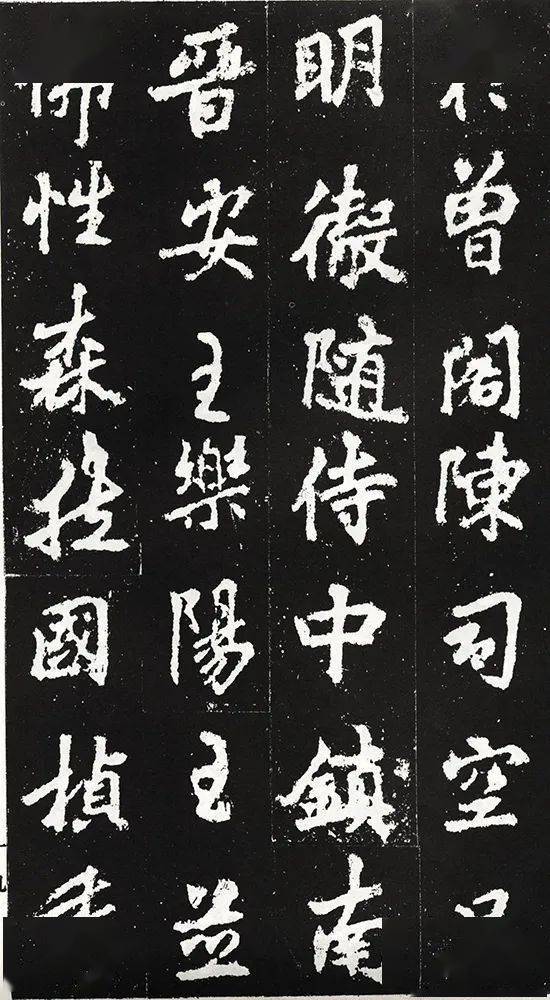 曾閣陳司空
明徹随侍中鎮南
晉安王樂陽王並
佛性森挺國楨